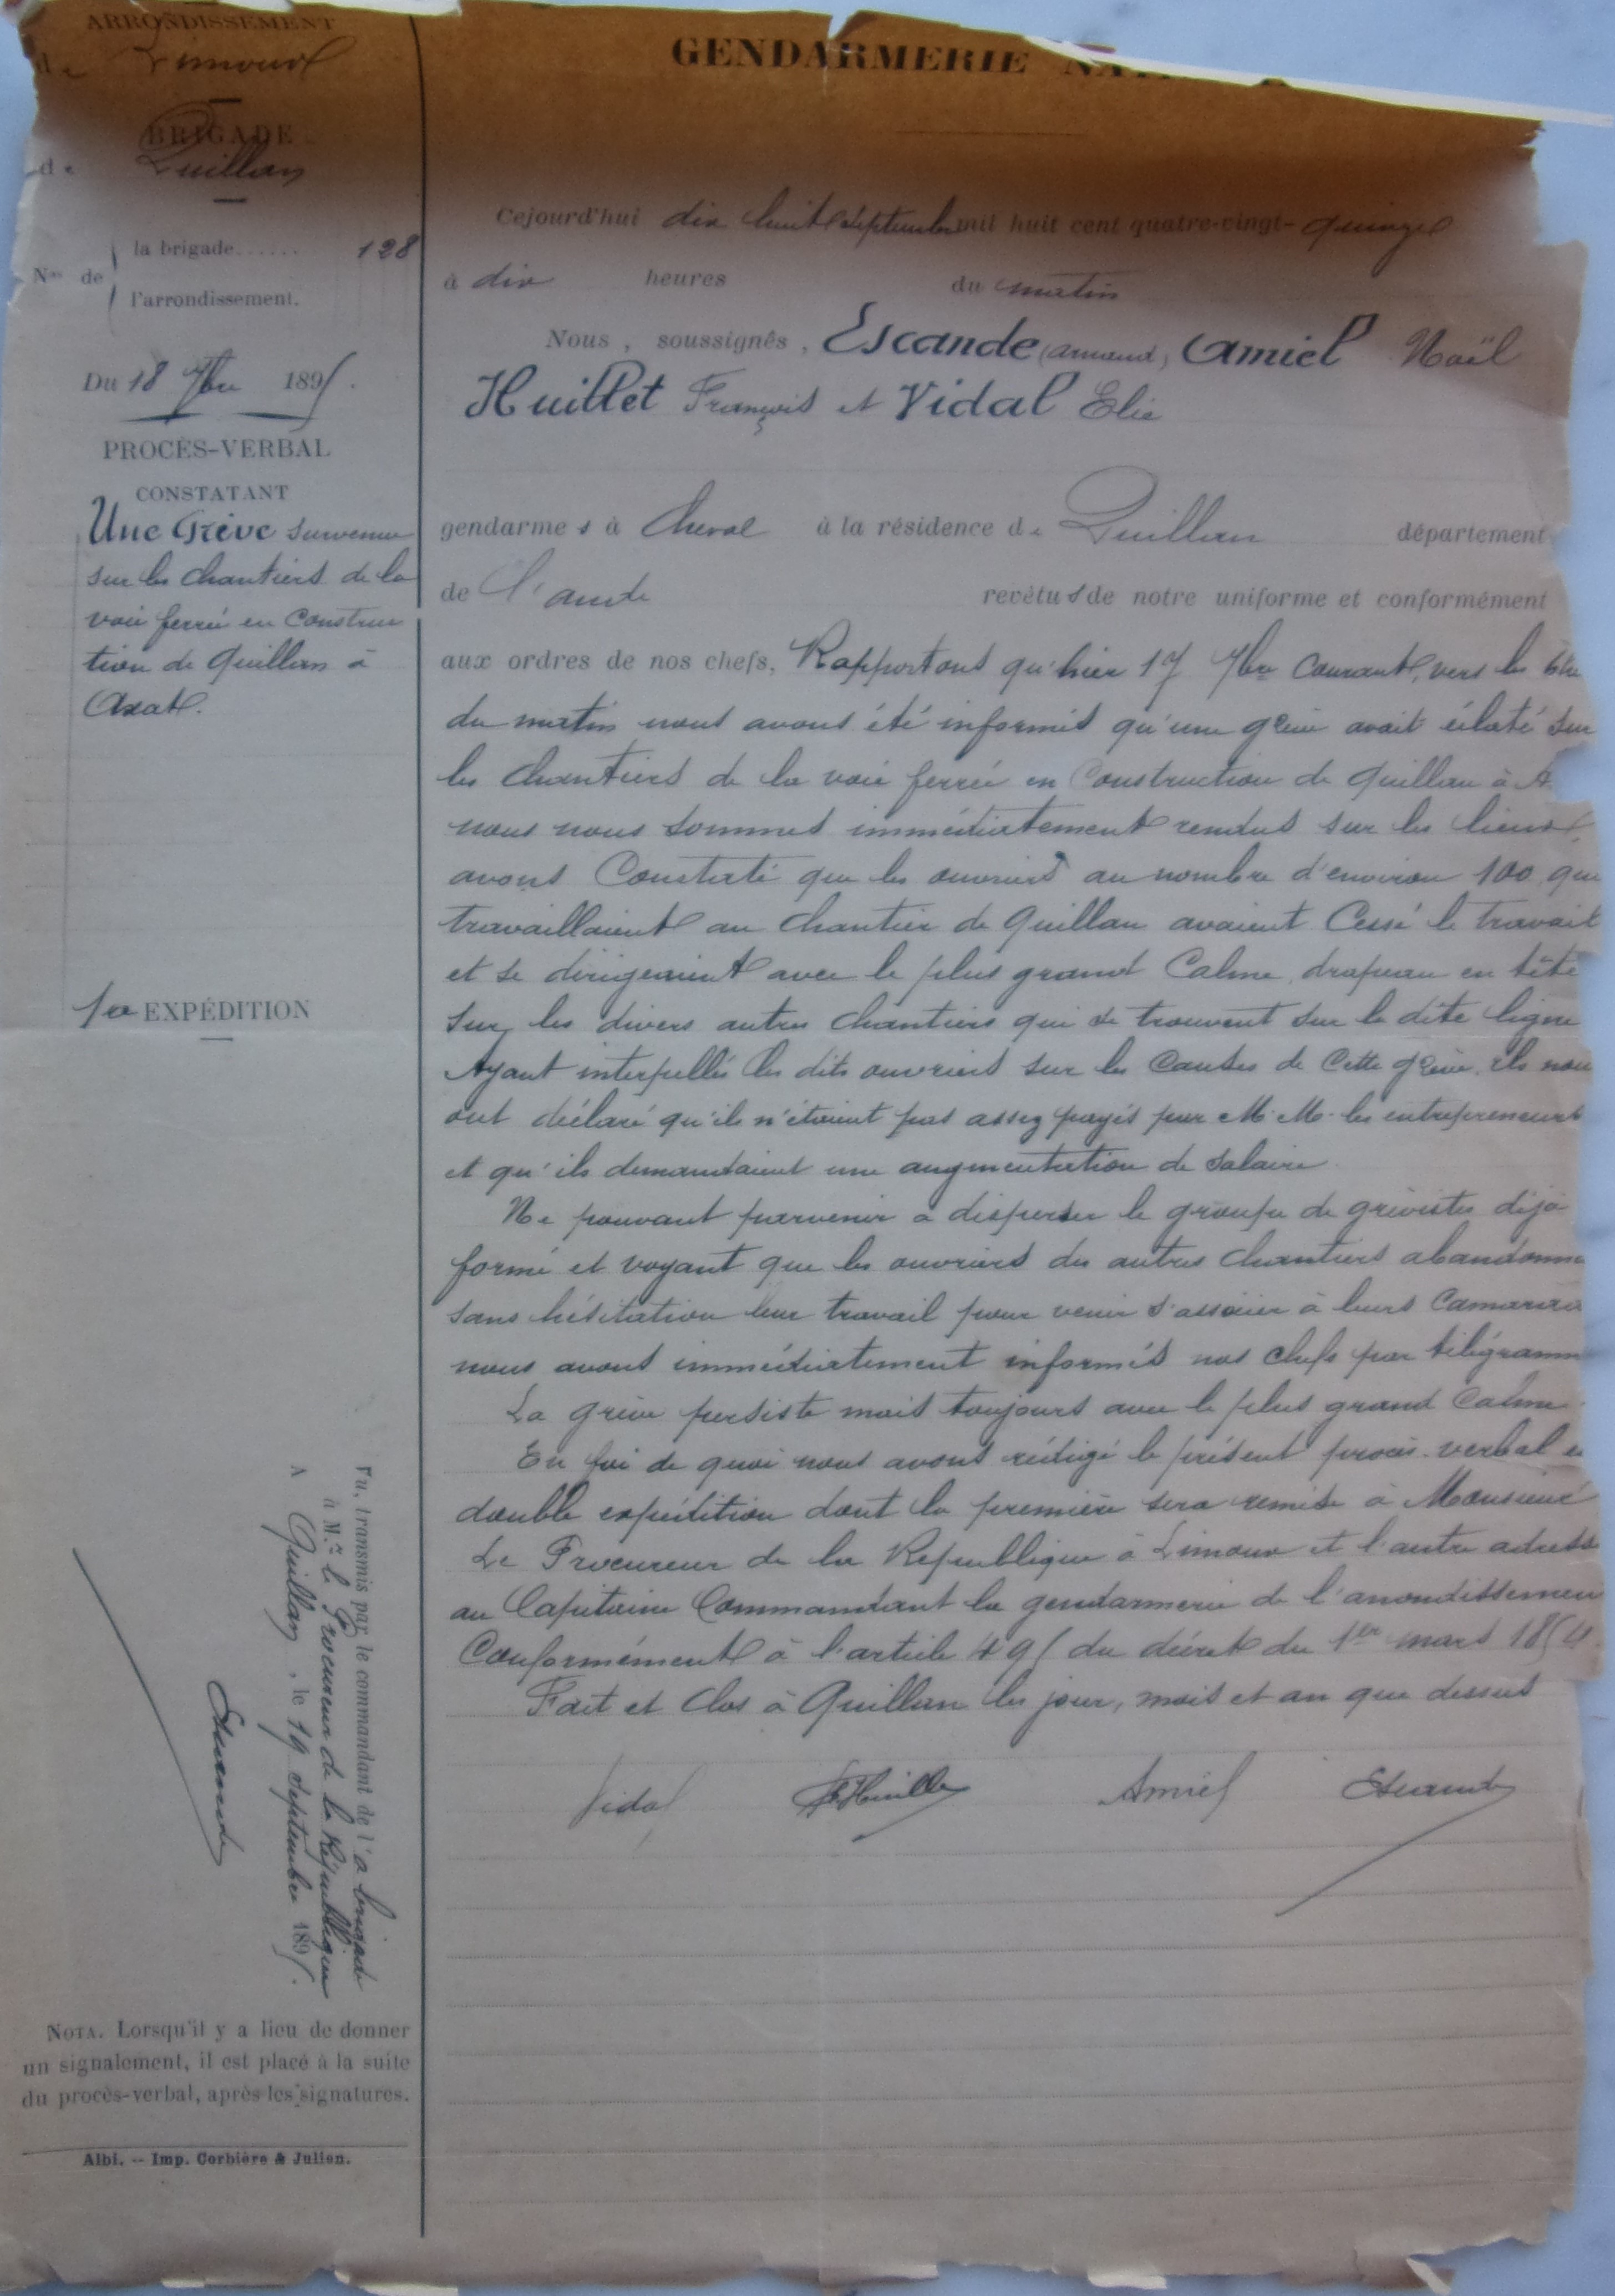 ARRONDISSEMENT
de Limoux
BRIGADE
de Quillan
Nos de la brigade ...... 128
l'arrondissement.
Du 18 7bre 1895.
PROCÈS-VERBAL
CONSTATANT
Une Grève survenue
sur les chantiers de la
voie ferrée en Construc
tion de Quillan à
Axat.
1re EXPÉDITION
Vu, transmis par le commandant de l'a brigade
à M.r le Procureur de la République
A Quillan, le 19 Septembre 1895.
Escande
NOTA. Lorsqu'il y a lieu de donner
un signalement, il est placé à la suite
du procès-verbal, après les signatures.
Albi. -- Imp. Corbière & Julien.
GENDARMERIE
Cejourd'hui dix huit septembre mil huit cent quatre-vingt-quinze
à dix heures du matin
Nous, soussignés, Escande (Armand) Amiel Noël
Huillet François et Vidal Elie
gendarmes à Cheval à la résidence de Quillan département
de l'aude revêtus de notre uniforme et conformément
aux ordres de nos chefs, Rapportons qu'hier 17 7bre Courant, vers les 6h
du matin nous avons été informés qu'une grève avait éclaté sur
les chantiers de la voie ferrée en Construction de Quillan à A
nous nous sommes immédiatement rendus sur les lieux
avons Constaté que les ouvriers au nombre d'environ 100 qui
travaillaient au chantier de Quillan avaient Cessé le travail
et se dirigeaient avec le plus grand Calme, drapeau en tête
sur les divers autres chantiers qui se trouvent sur la dite ligne
Ayant interpellés les dits ouvriers sur les Causes de Cette grève, ils nous
ont déclaré qu'ils n'étaient pas assez payés par M.M. les entrepreneurs
et qu'ils demandaient une augmentation de salaire
Ne pouvant parvenir à disperser le groupe de grévistes déjà
formé et voyant que les ouvriers des autres chantiers abandonna
sans hésitation leur travail pour venir s'associer à leurs Camara
nous avons immédiatement informés nos chefs par télégramme
La grève persiste mais toujours avec le plus grand Calme.
En foi de quoi nous avons rédigé le présent procès-verbal en
double expédition dont la première sera remise à Monsieur
Le Procureur de la République à Limoux et l'autre adressé
au Capitaine Commandant la gendarmerie de l'arrondissemen
Conformément à l'article 495 du décret du 1er mars 1854.
Fait et Clos à Quillan les jour, mois et an que dessus
Vidal F Huillet Amiel Escande